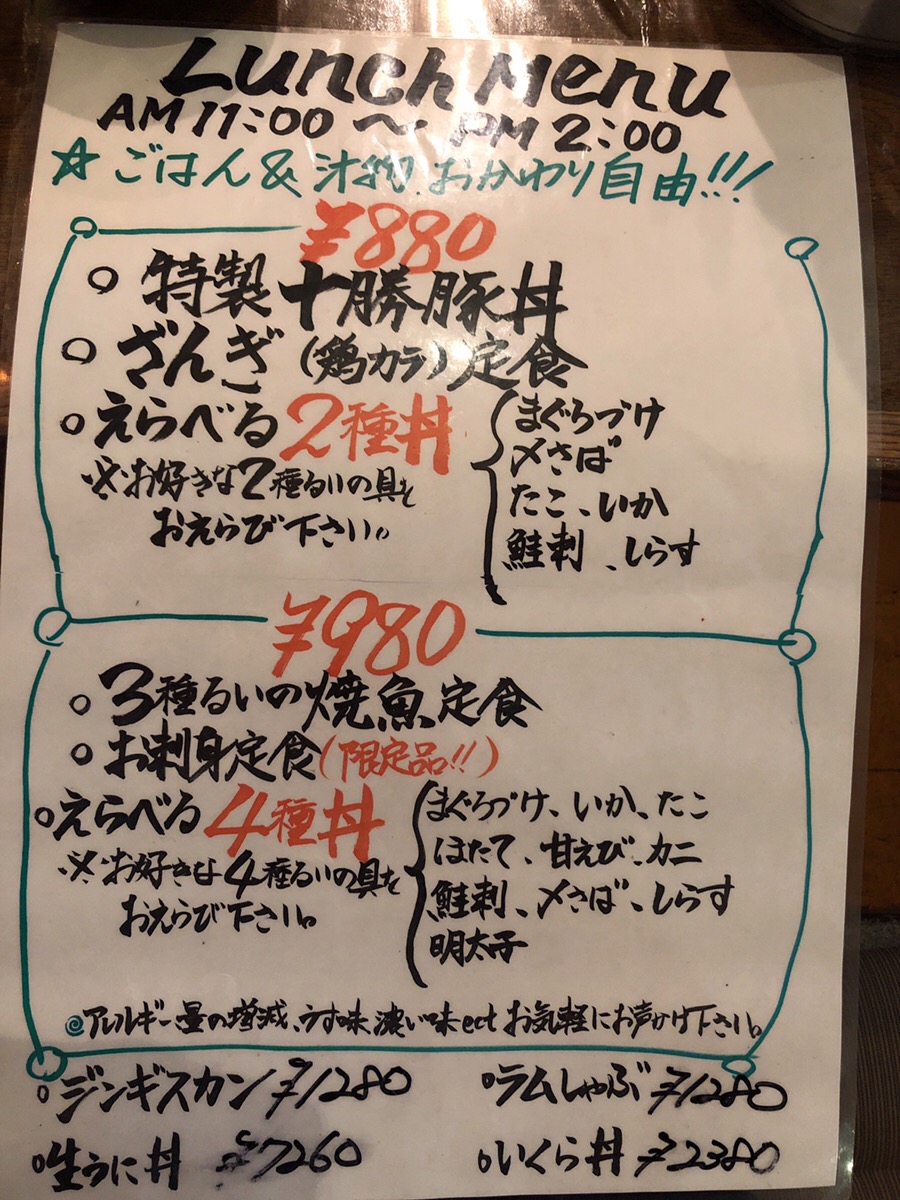 Lunch Menu
AM 11:00 〜 PM 2:00
☆ ごはん & 汁物 おかわり自由!!!
¥880
○ 特製 十勝豚丼
○ ざんぎ(鶏カラ)定食
○ えらべる 2種丼
※お好きな2種るいの具を
おえらび下さい。
まぐろづけ
〆さば
たこ、いか
鮭刺、しらす
¥980
○ 3種るいの焼魚定食
○ お刺身定食(限定品!!)
○ えらべる 4種丼
※お好きな4種るいの具を
おえらび下さい。
まぐろづけ、いか、たこ
ほたて、甘えび、カニ
鮭刺、〆さば、しらす
明太子
◎アレルギー量の増減、うす味濃い味ect お気軽にお声かけ下さい。
○ジンギスカン ¥1280
○ラムしゃぶ ¥1280
○生うに丼 ¥7260
○いくら丼 ¥2380